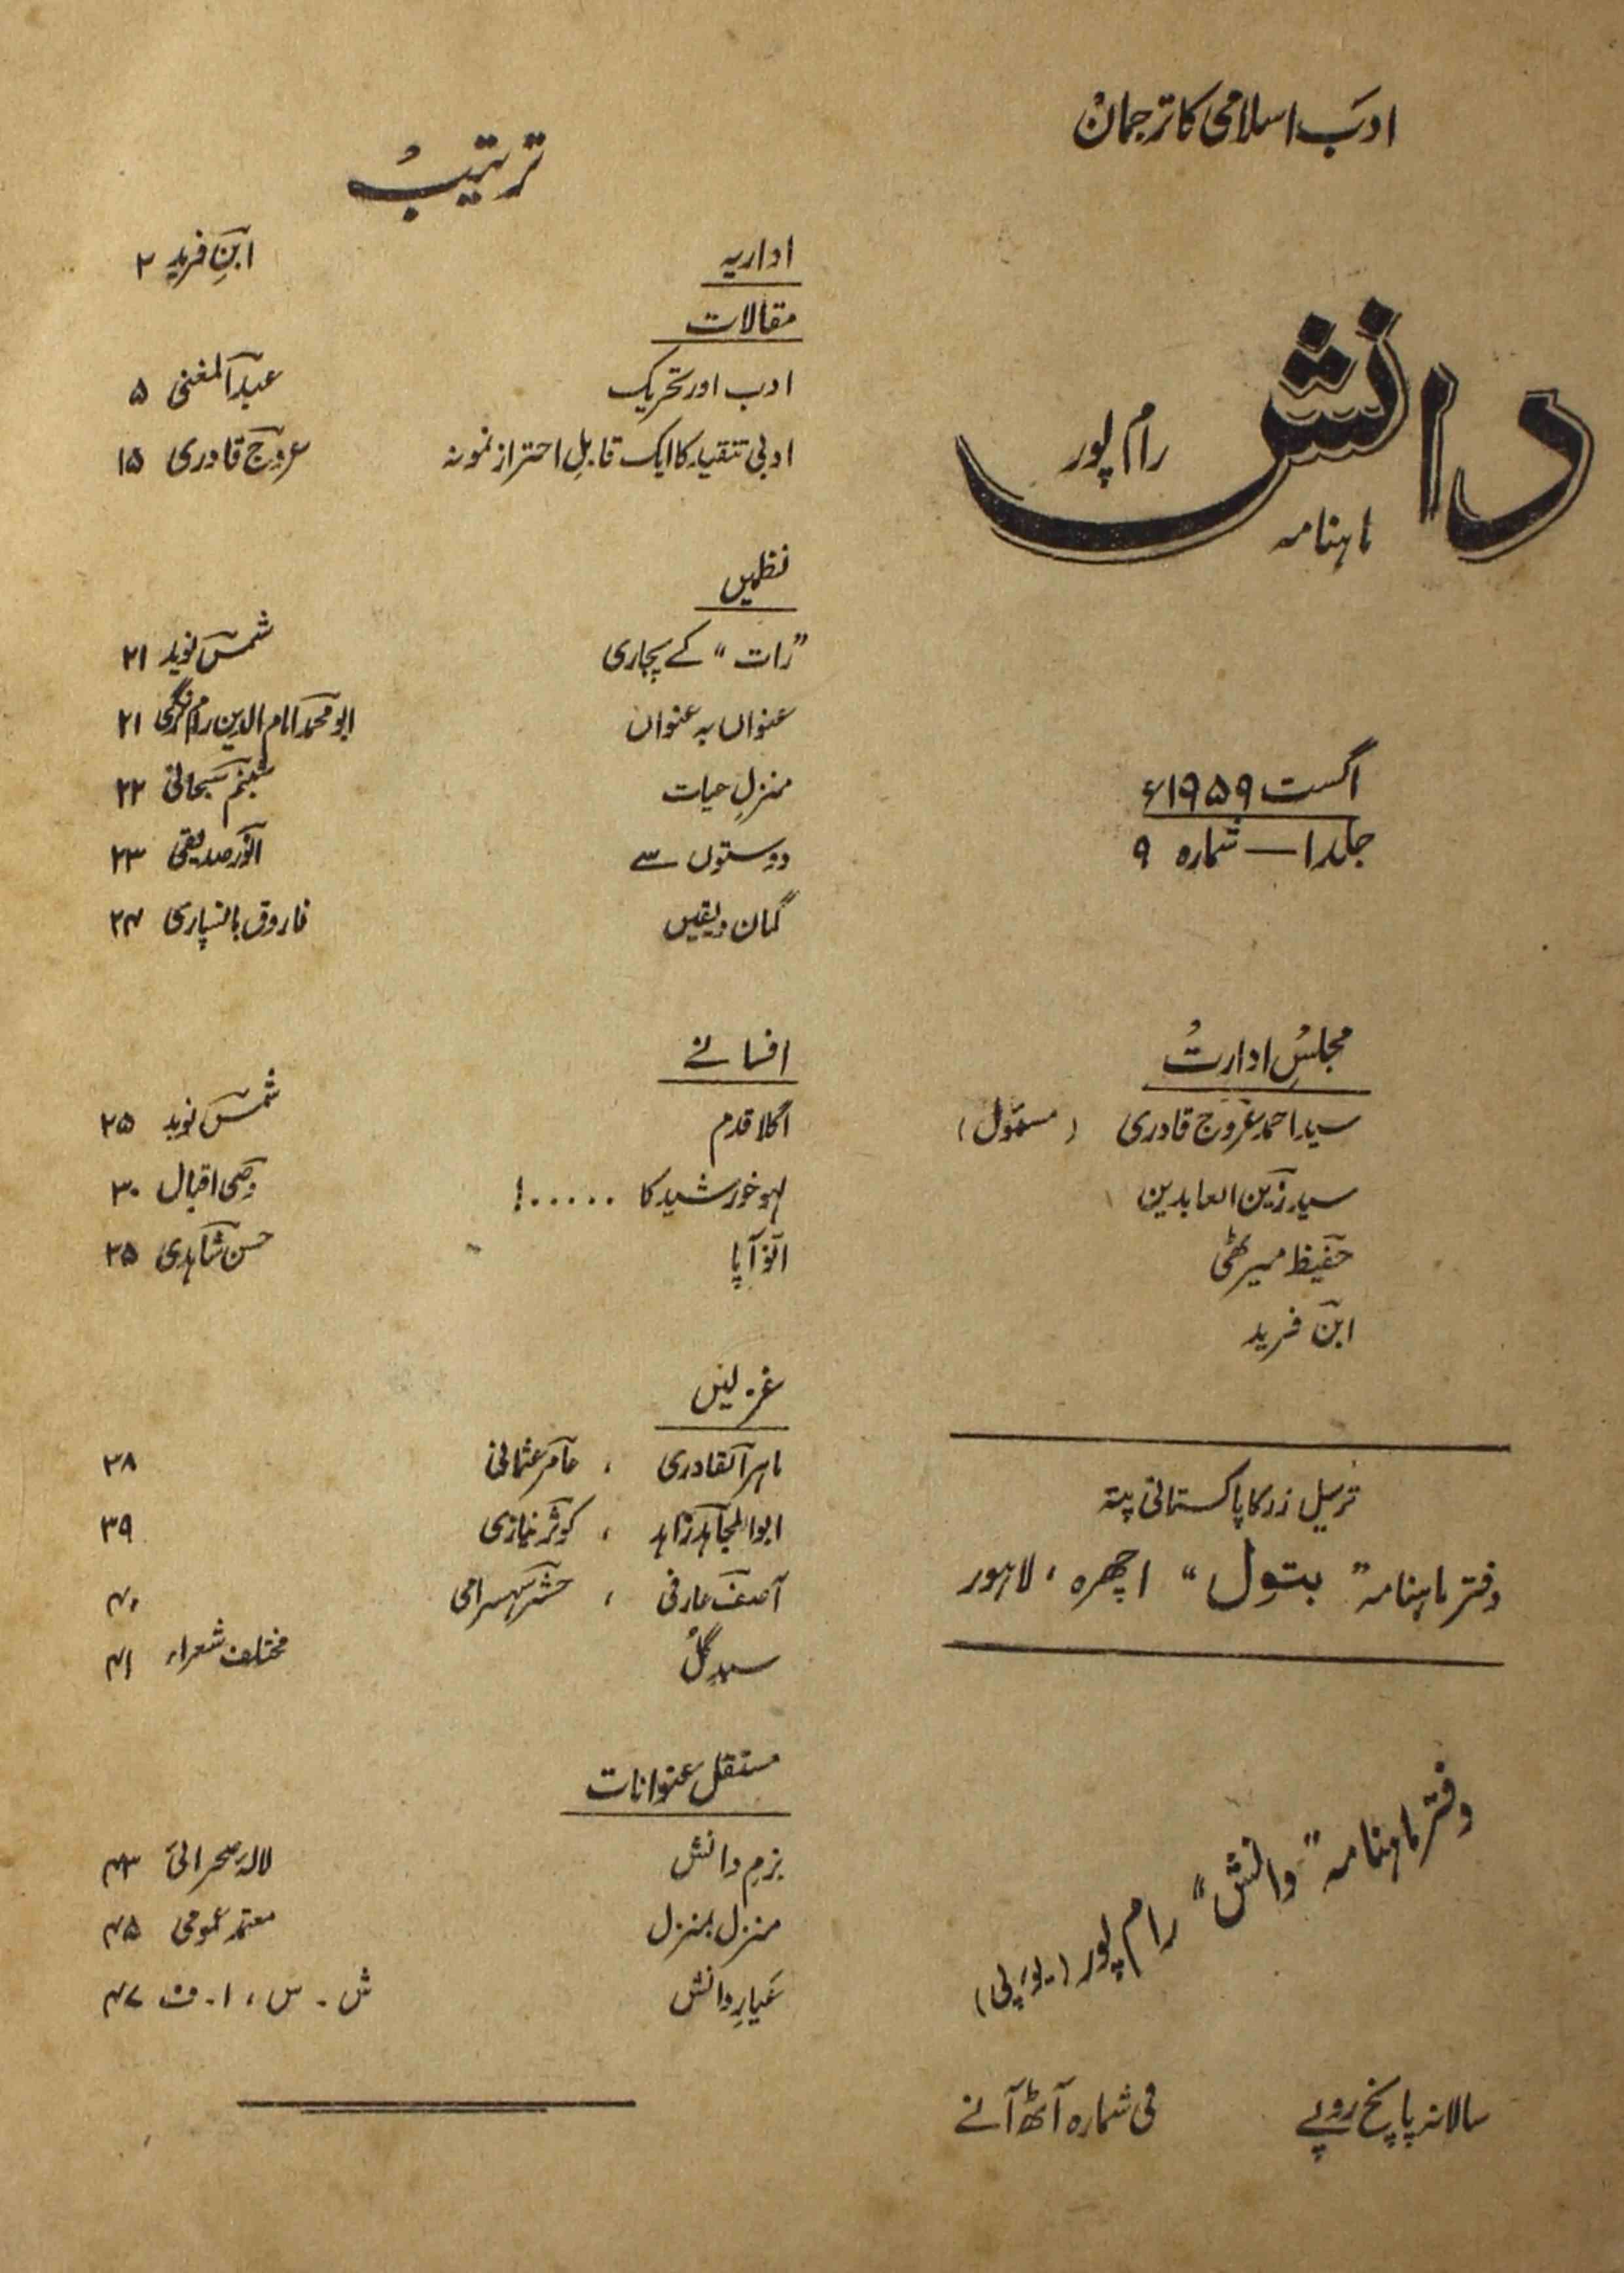 ادب اسلامی کا ترجمان
دانش
رام پور
ماہنامہ
اگست ۱۹۵۹ء
جلد ۱ — شمارہ ۹
مجلس ادارت
سید احمد عروج قادری (مسئول)
سید زین العابدین
حفیظ میرٹھی
ابن فرید
ترسیل زر کا پاکستانی پتہ
دفتر ماہنامہ "بتول" اچھرہ، لاہور
دفتر ماہنامہ "دانش" رام پور (یو، پی)
سالانہ پانچ روپے فی شمارہ آٹھ آنے
ترتیب
اداریہ ابنِ فرید ۲
مقالات
ادب اور تحریک عبد المغنی ۵
ادبی تنقید کا ایک قابلِ احتراز نمونہ عروج قادری ۱۵
نظمیں
"رات" کے پجاری شمس نوید ۲۱
عنواں بہ عنواں ابو محمد امام الدین رام نگری ۲۱
منزلِ حیات شبنم سبحانی ۲۲
دوستوں سے انور صدیقی ۲۳
گمان و یقیں فاروق بانسپاری ۲۴
افسانے
اگلا قدم شمس نوید ۲۵
لہو خورشید کا .....! وصی اقبال ۳۰
انو آپا حسن شاہدی ۳۵
غزلیں
ماہر القادری ، عامر عثمانی ۳۸
ابو المجاہد زاہد ، کوثر نیازی ۳۹
آصف عارفی ، حشر سہسرامی ۴۰
سبدِ گل مختلف شعراء ۴۱
مستقل عنوانات
بزمِ دانش لالہ صحرائی ۴۳
منزل بمنزل معتمد عمومی ۴۵
عیارِ دانش ش۔ س، ا۔ ف ۴۷